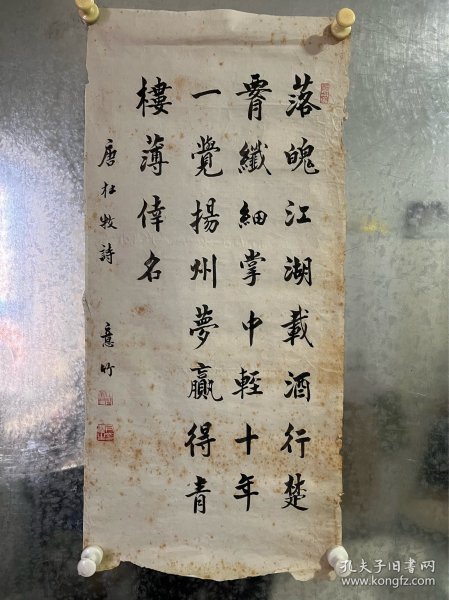 落魄江湖載酒行楚
腰纖細掌中輕十年
一覺揚州夢贏得青
樓薄倖名
唐杜牧詩 意竹
孔夫子旧书网
www.kongfz.com